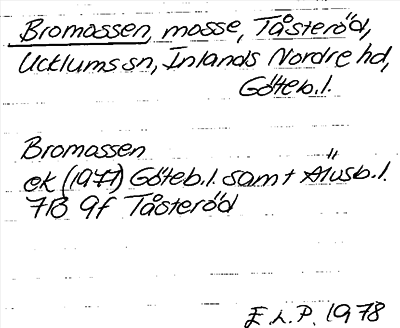 Bromossen, mosse, Tåsteröd,
Ucklums sn, Inlands Nordre hd,
Göteb.l.
Bromossen
ek (1977) Göteb.l. samt Älvsb.l.
7B 9f Tåsteröd
E L.P. 1978